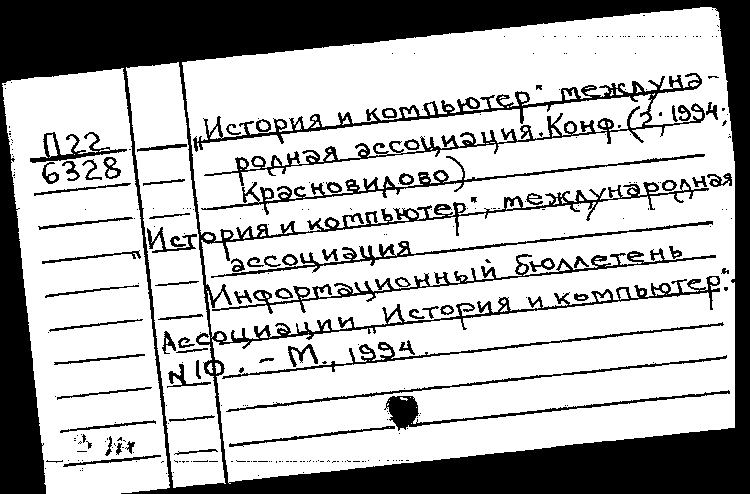 П22
6328
„История и компьютер“, междуна-
родная ассоциация. Конф. (3; 1994;
Красновидово).
„История и компьютер“, международная
ассоциация
Информационный бюллетень
Ассоциации „История и компьютер“.-
N 10. - М., 1994.